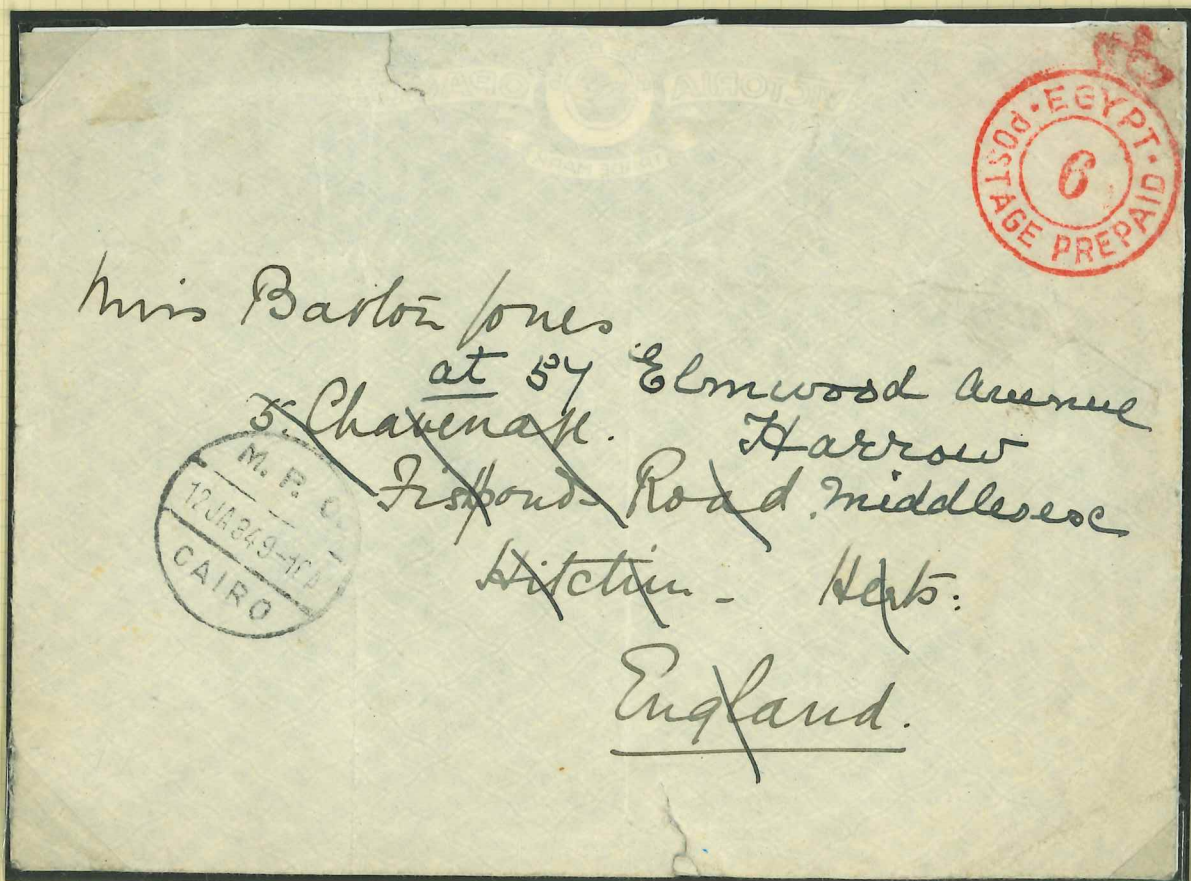 EGYPT
POSTAGE PREPAID
6
Miss Barton Jones
at 57 Elmwood Avenue
5. Chavenage.
Harrow
Fishponds Road
Middlesex
Hitchin - Herts:
England.
M. P. O.
12 JA 34 9-10
CAIRO